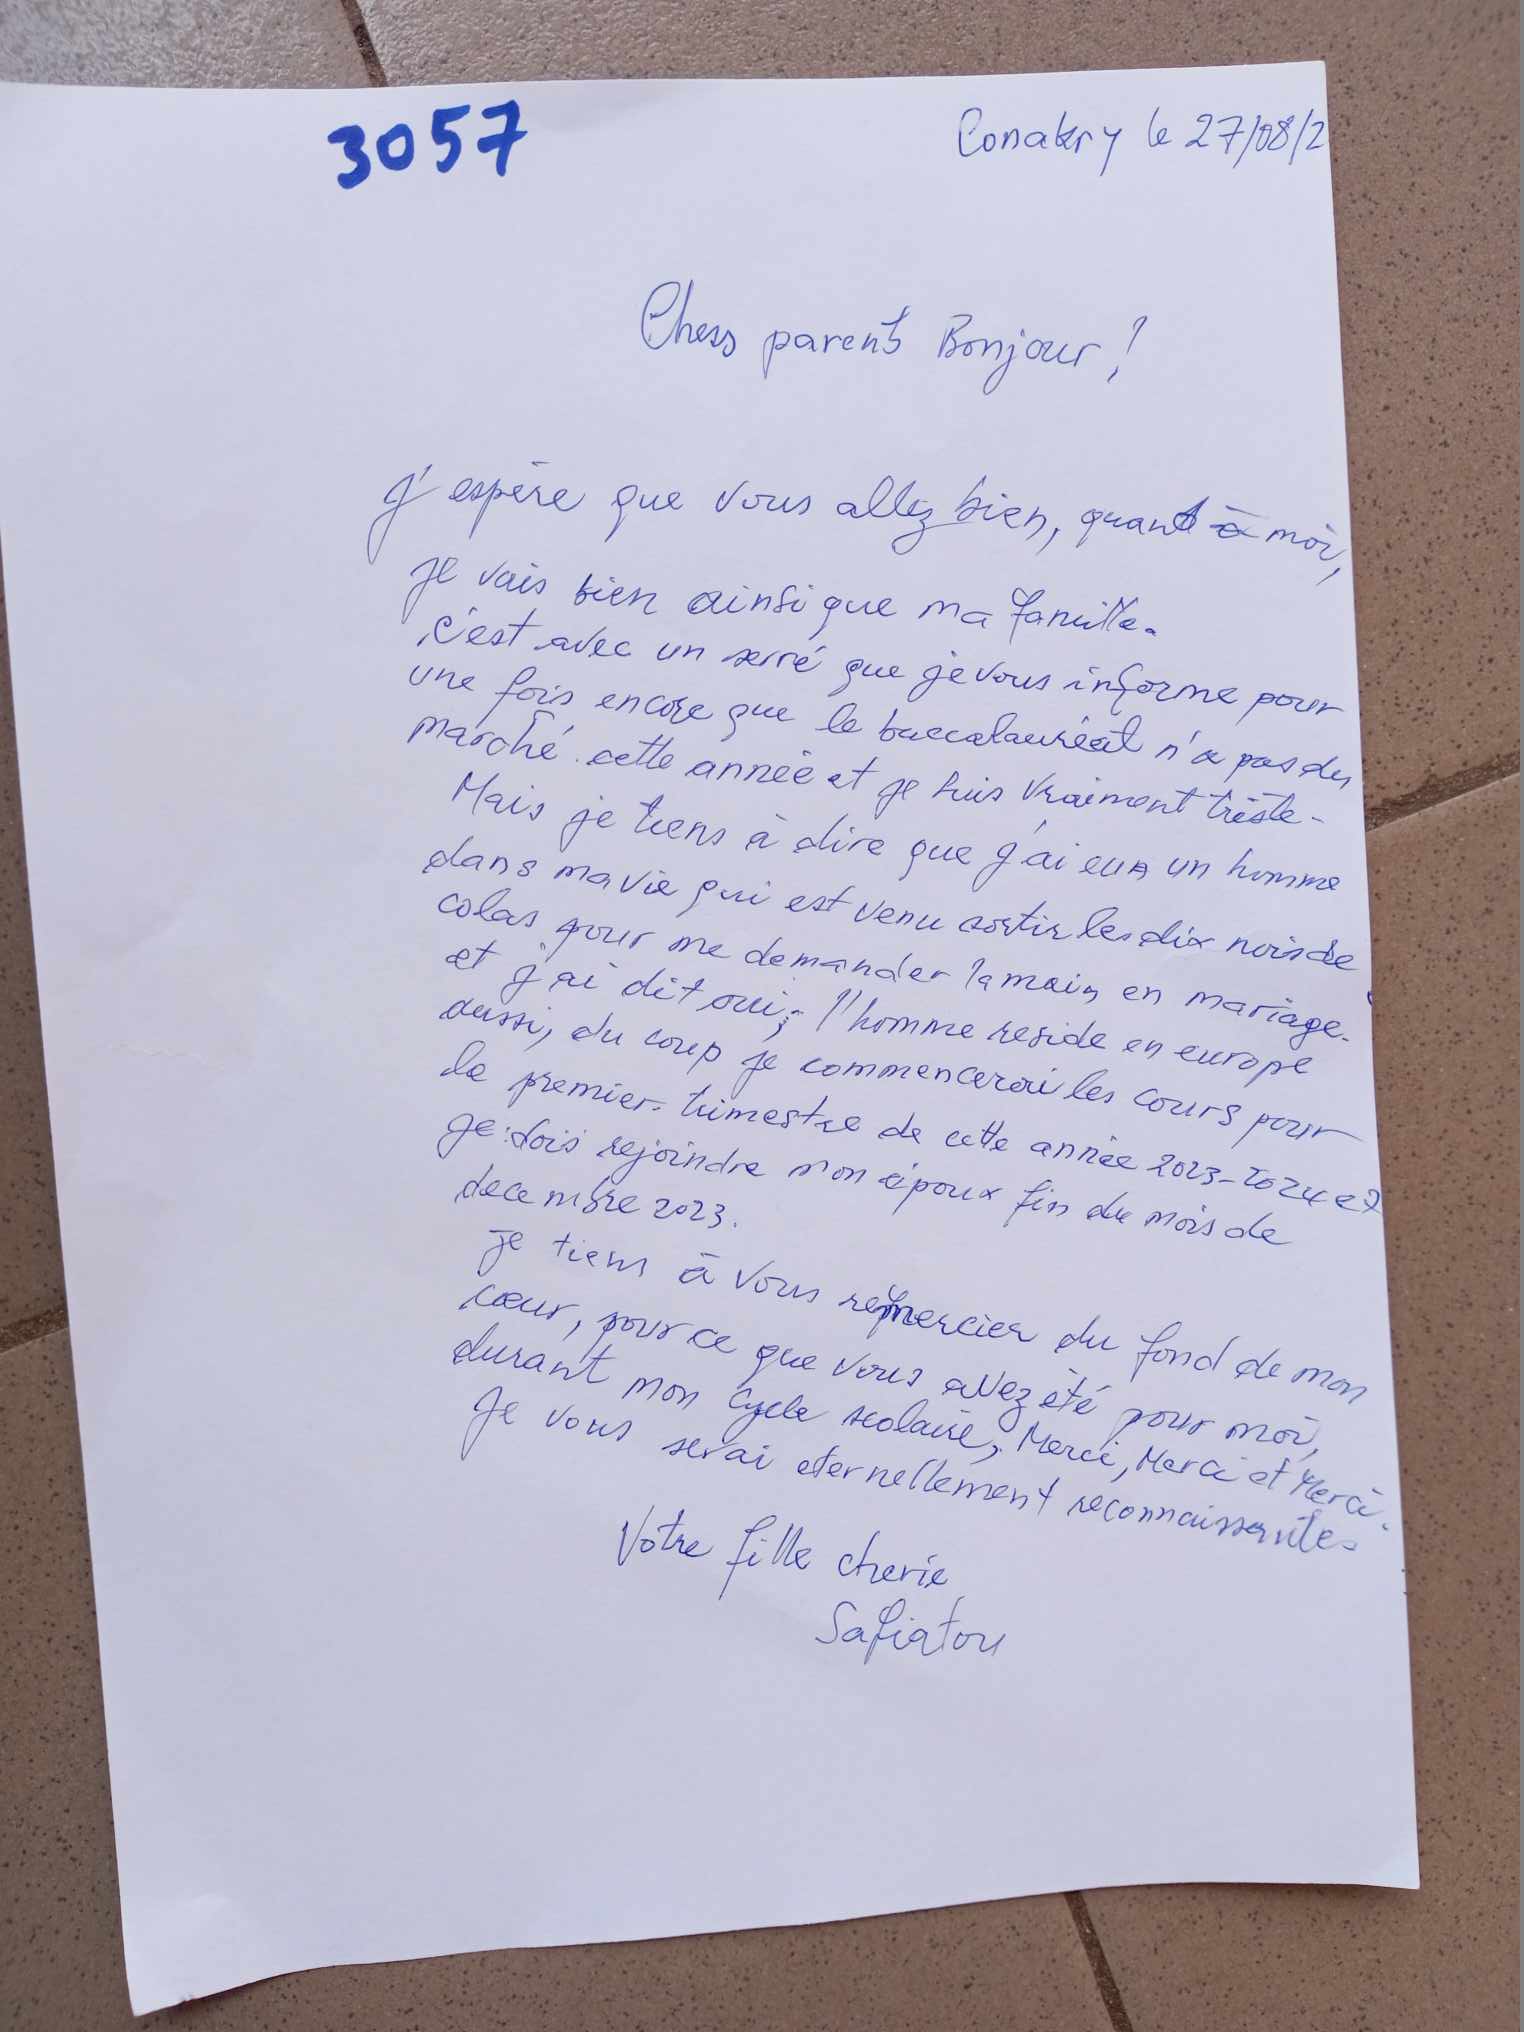 3057
Conakry le 27/08/2
Chers parents Bonjour !
J'espère que vous allez bien, quant à moi,
je vais bien ainsi que ma famille.
c'est avec un serré que je vous informe pour
une fois encore que le baccalauréat n'a pas du
marché cette année et je suis vraiment triste.
Mais je tiens à dire que j'ai eu un homme
dans ma vie qui est venu sortir les dix noix de
colas pour me demander la main en mariage.
et j'ai dit oui; l'homme reside en europe
aussi, du coup je commencerai les cours pour
le premier trimestre de cette année 2023-2024 et
je dois rejoindre mon époux fin du mois de
decembre 2023.
je tiens à vous remercier du fond de mon
cœur, pour ce que vous avez été pour moi,
durant mon cycle scolaire, Merci, Merci et Merci.
Je vous serai eternellement reconnaissante.
Votre fille cherie
Safiatou